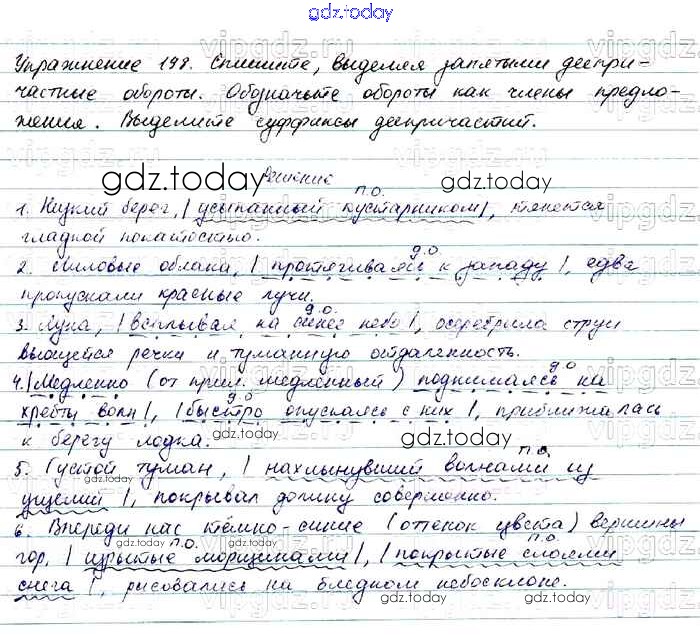 gdz.today
Упражнение 198. Спишите, выделяя запятыми деепри-
частные обороты. Обозначьте обороты как члены предло-
жения. Выделите суффиксы деепричастий.
Решение
gdz.today
gdz.today
п.о.
1. Низкий берег, | усыпанный кустарником |, тянется
гладкой покатостью.
д.о
2. Лиловые облака, | протягиваясь к западу |, едва
пропускали красные лучи.
д.о.
3. Луна, | всплывая на синее небо |, осеребрила струи
вьющейся речки и туманную отдаленность.
д.о
4. | Медленно (от прил. медленный) поднимаясь на
д.о.
хребты волн |, | быстро опускаясь с них |, приближалась
к берегу лодка.
gdz.today
gdz.today
п.о.
5. Густой туман, | нахлынувший волнами из
gdz.today
ущелий |, покрывал долину совершенно.
6. Впереди нас тёмно-синие (оттенок цвета) вершины
gdz.today
п.о.
п.о.
гор, | изрытые морщинами |, | покрытые слоями
снега |, рисовались на бледном небосклоне.
gdz.today
gdz.today